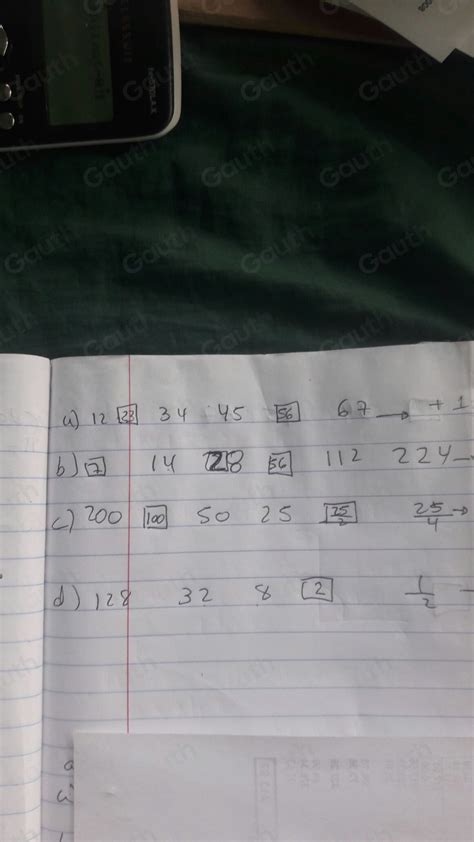 a) 12 23 34 45 56 67 → + 1
b) 7 14 28 56 112 224
c) 200 100 50 25 25/2 25/4 →
d) 128 32 8 2 1/2